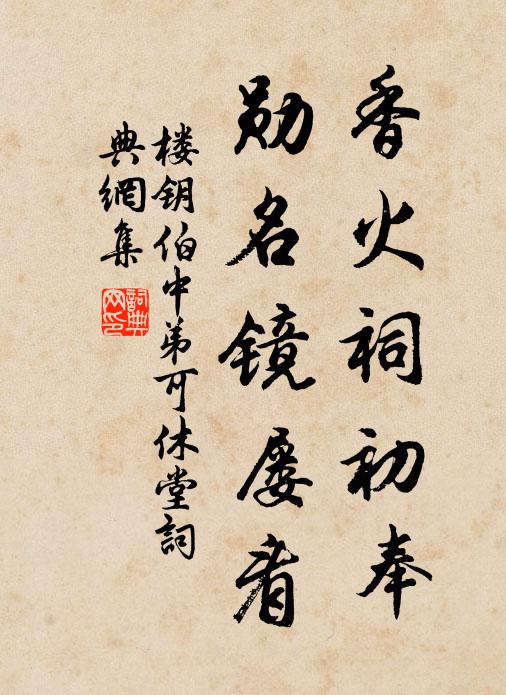 香火祠初奉
勋名镜屡看
楼钥伯中弟可休堂詞
典網集
詞典网印